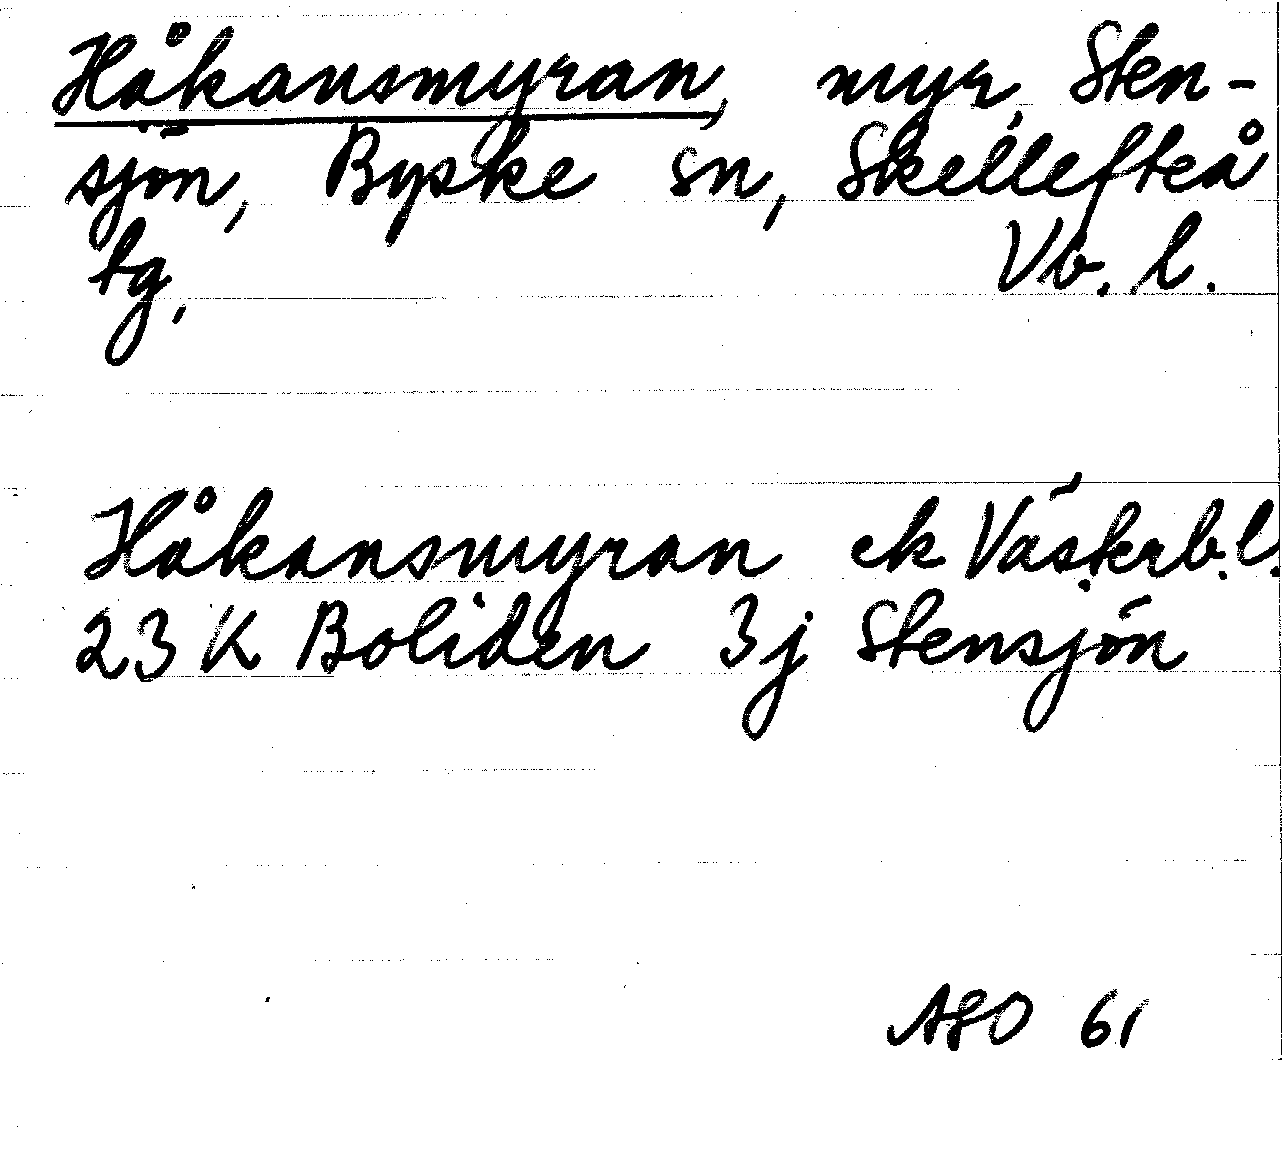 Håkansmyran, myr, Sten-
sjön, Byske sn, Skellefteå
tg, Vb. l.
Håkansmyran ek Västerb.l.
23 K Boliden 3j Stensjön
61